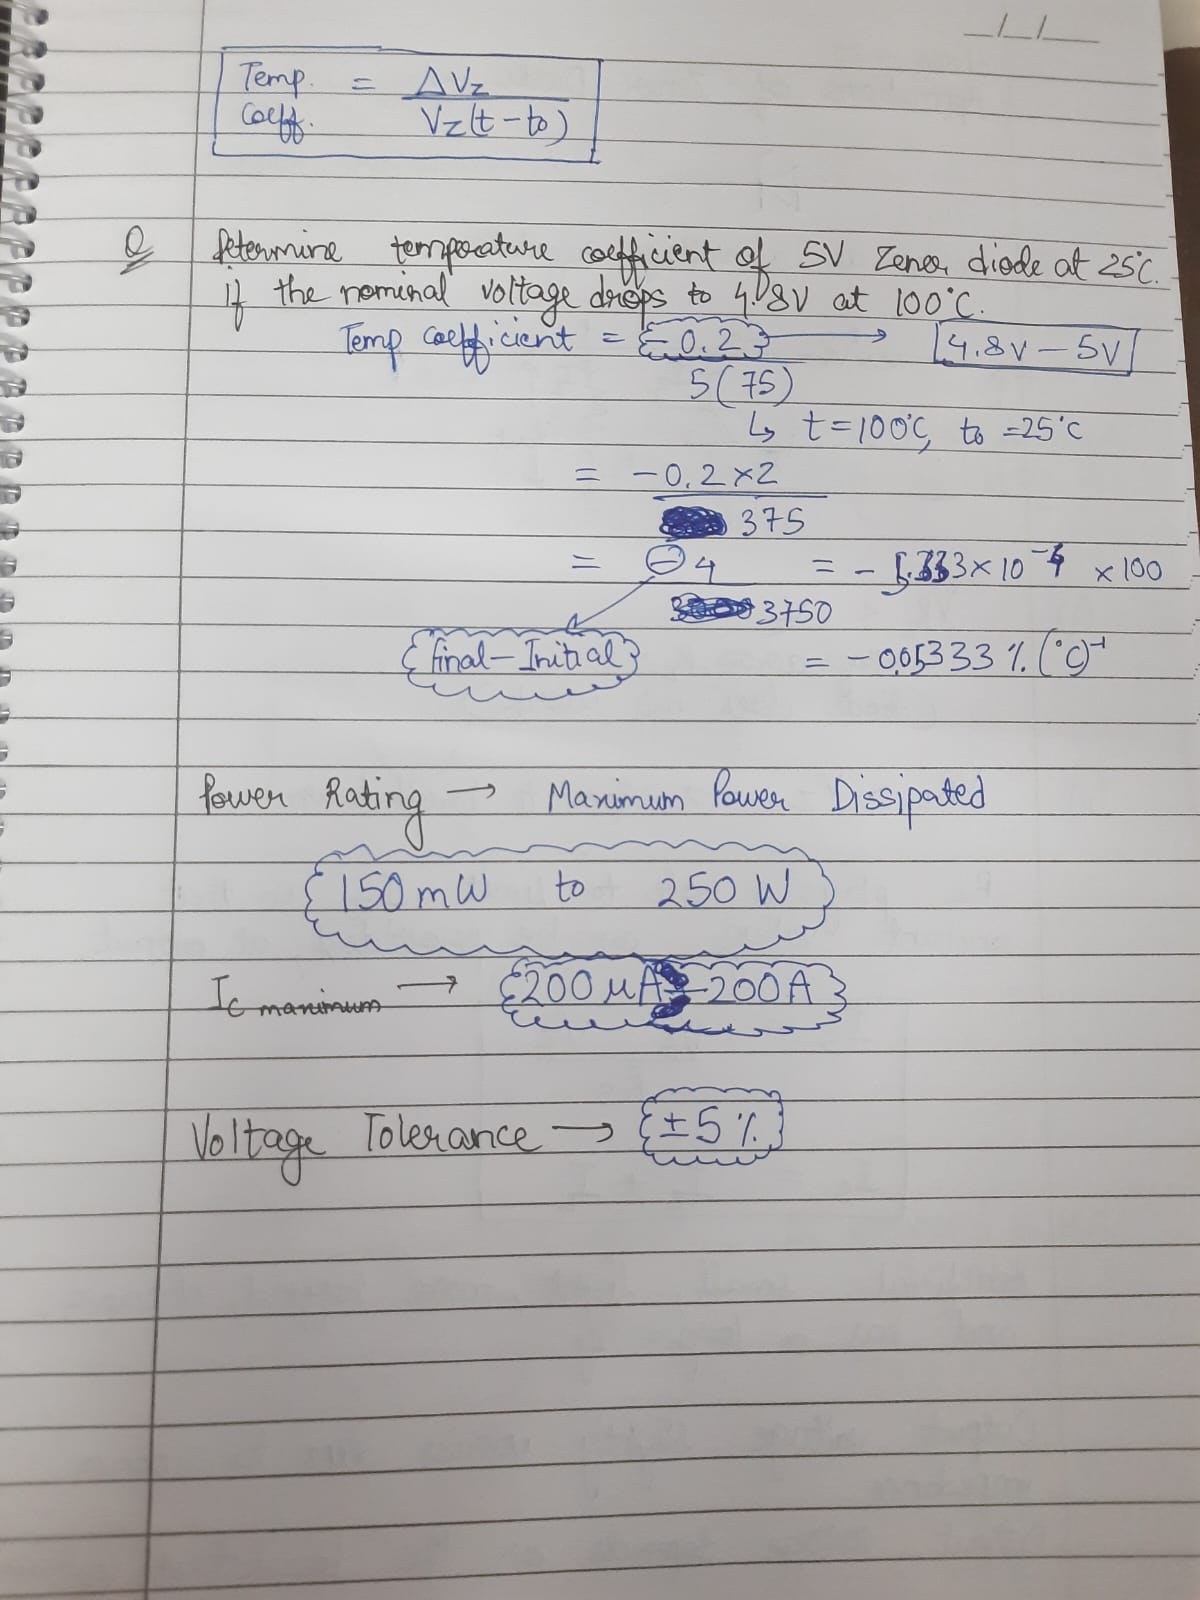 _/_/__
Temp. Coeff. = ΔVz / Vz(t-to)
Q Determine temperature coefficient of 5V Zener diode at 25°C.
if the nominal voltage drops to 4.8V at 100°C.
Temp coefficient = -0.2 / 5(75) → 4.8V-5V
↳ t=100°C, to=25°C
= -0.2×2 / 375
= -4 / 3750 = -5.333×10⁻⁴ ×100
Final-Initial = -0.05333 %(°C)⁻¹
Power Rating → Maximum Power Dissipated
150mW to 250W
Ic maximum → 200μA - 200A
Voltage Tolerance → ±5%